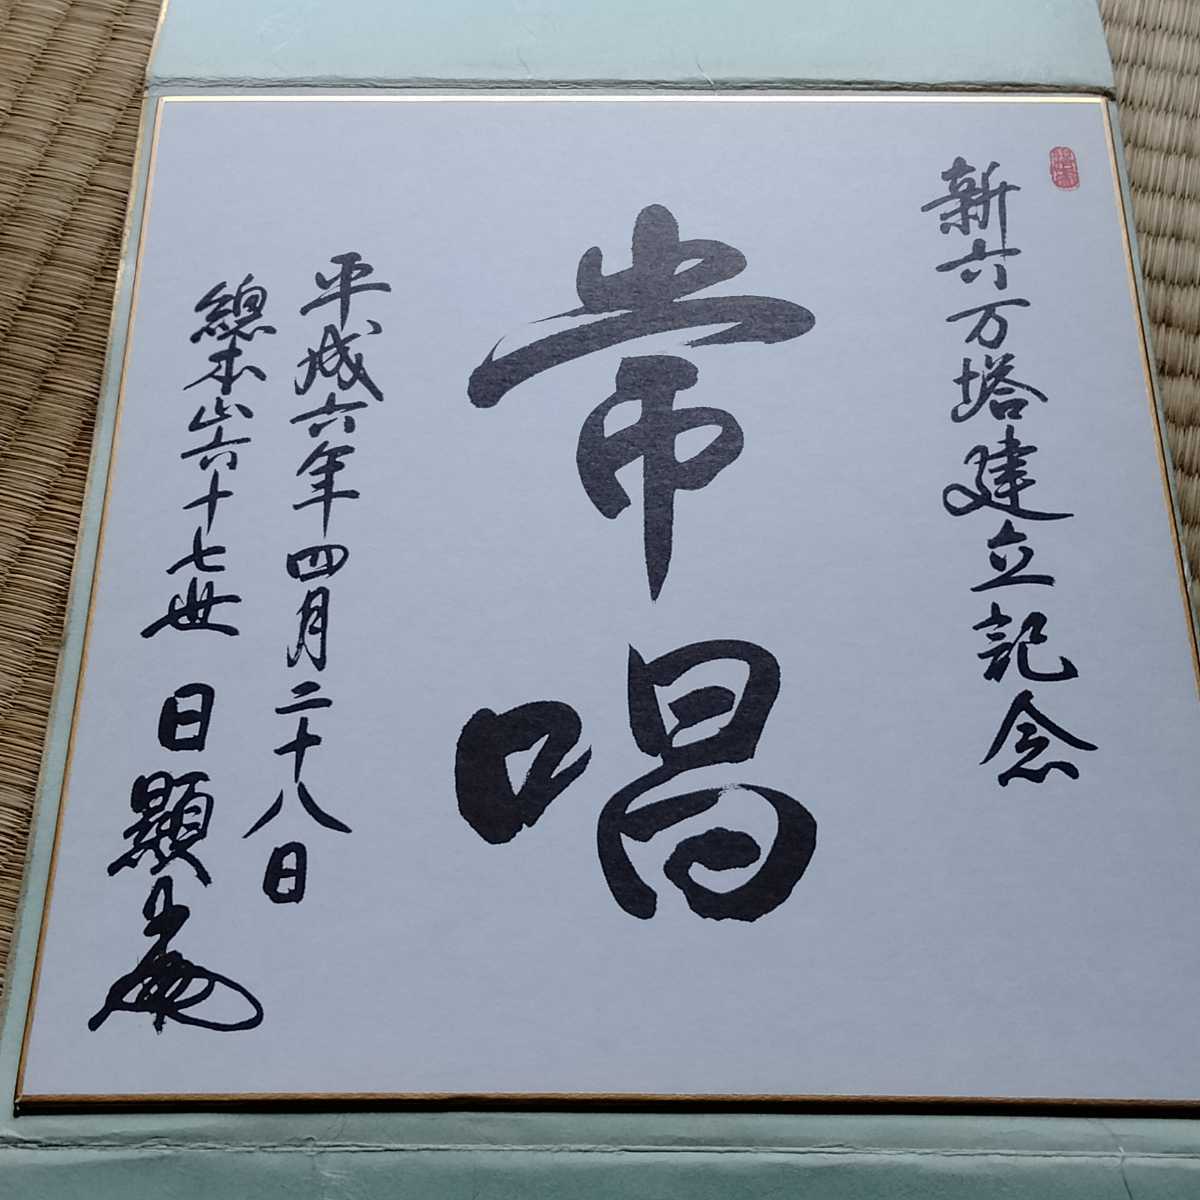 新六万塔建立記念
常唱
平成六年四月二十八日
總本山六十七世 日顯